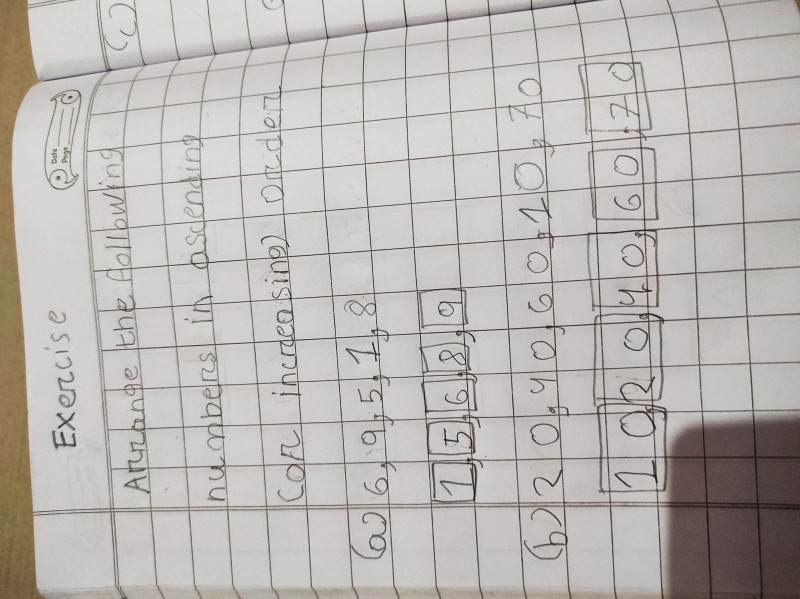 (c)
Date
Page
Exercise
Arrange the following
numbers in ascending
(or increasing) order
(a) 6, 9, 5, 1, 8
1, 5, 6, 8, 9
(b) 20, 40, 60, 10, 70
10, 20, 40, 60, 70